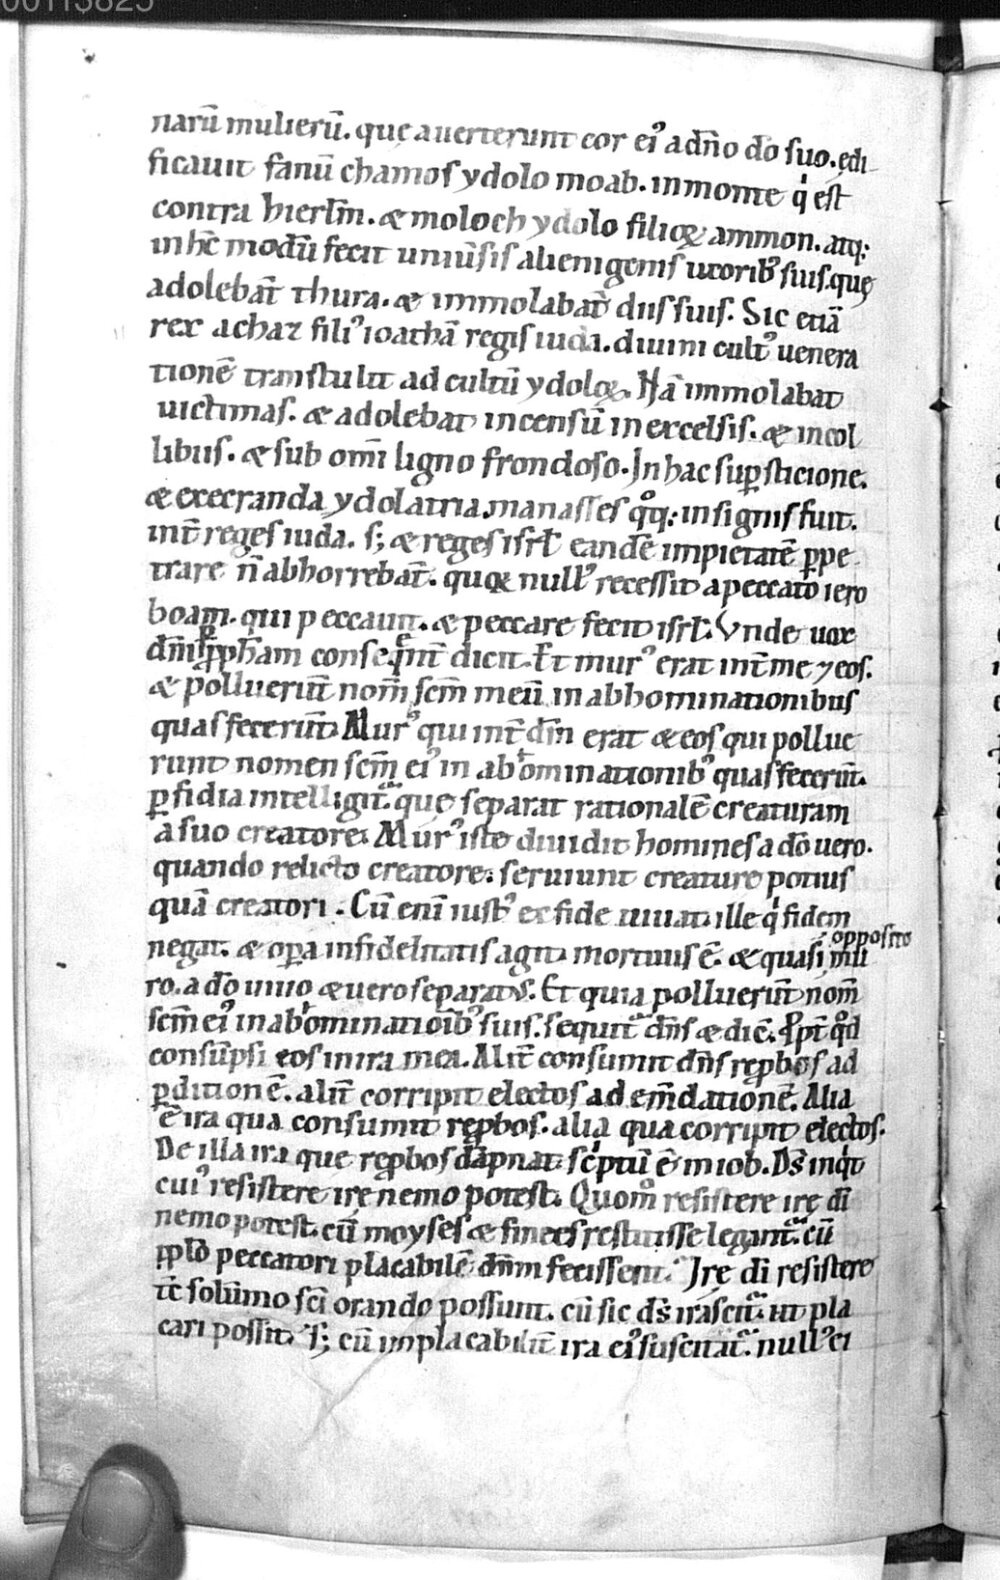 00113825
narū mulierū. quę auerterunt cor eiꝰ a dn̄o dō suo. ędi
ficauit fanū chamos ydolo moab. in monte qͥ est
contra hierlm̄. & moloch ydolo filioꝝ ammon. atq;
in hc̄ modū fecit uniūsis alienigenis uxoribꝰ suis. quę
adolebant̄ thura. & immolabant̄ diis suis. Sic etiā
rex achaz filiꝰ ioathā regis iuda. diuini cultꝰ uenera
tionē transtulit ad cultū ydoloꝝ. Nā immolabat
uictimas. & adolebat incensū in excelsis. & in col
libus. & sub om̄i ligno frondoso. In hac suꝑsticione.
& execranda ydolatria manasses qͦq; insignis fuit.
int̄ reges iuda. s; & reges isrl̄ eandē impietatē ꝑpe
trare n̄ abhorrebāt. quoꝝ nullꝰ recessit a peccato iero
boam. qui peccauit. & peccare fecit isrl̄. Vnde uox
dn̄i ꝑ ꝓph̄am conseqn̄t dicit. Et murꝰ erat int̄ me ⁊ eos.
& polluerūt nom̄ scm̄ meū in abhominationibus
quas fecerūt. Murꝰ qui int̄ dm̄ erat & eos qui pollue
runt nomen scm̄ eiꝰ in abhominationibꝰ quas fecerūt.
ꝑfidia intelligit᷑. quę separat rationalē creaturam
a suo creatore. Murꝰ iste diuidit homines a dō uero.
quando relicto creatore. seruiunt creaturę potius
quā creatori. Cū enī iustꝰ ex fide uiuat. ille qͥ fidem
negat. & oꝑa infidelitatis agit mortuus ē. & quasi opposito mu
ro. a dō uiuo & uero separatꝰ. Et quia polluerūt nom̄
scm̄ eiꝰ in abhominatioībꝰ suis. sequit᷑ dn̄s & dic̄. ꝓpt̄ qͦd
consūpsi eos in ira mea. Alit̄ consumit dn̄s reꝓbos ad
ꝑditionē. alit̄ corripit electos ad em̄dationē. Alia
ē ira qua consumit reꝓbos. alia qua corripit electos.
De illa ira que reꝓbos dāpnat. scͥptū ē in iob. Ds̄ inqͥt
cuiꝰ resistere irę nemo potest. Quom̊ resistere irę dī
nemo potest. cū moyses & finees restitisse legant᷑. cū
ꝓplo peccatori placabilē dn̄m fecissent. Irę dī resistere
tc̄ solūmo scī orando possunt. cū sic ds̄ irascit᷑. ut pla
cari possit. S; cū inplacabilit̄ ira eiꝰ suscitat᷑. nullꝰ ei